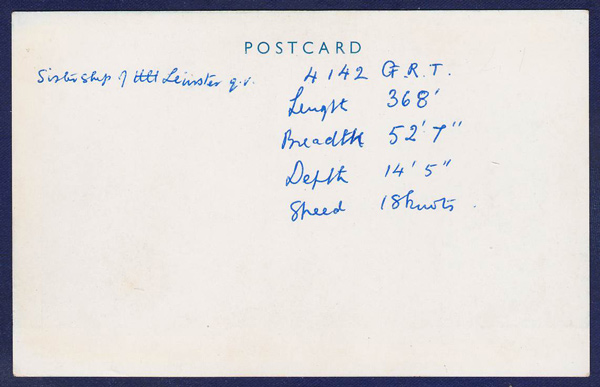 POSTCARD
Sister ship of Leinster q.v.
4142 G.R.T.
Length 368'
Breadth 52' 7"
Depth 14' 5"
Speed 18 knots.